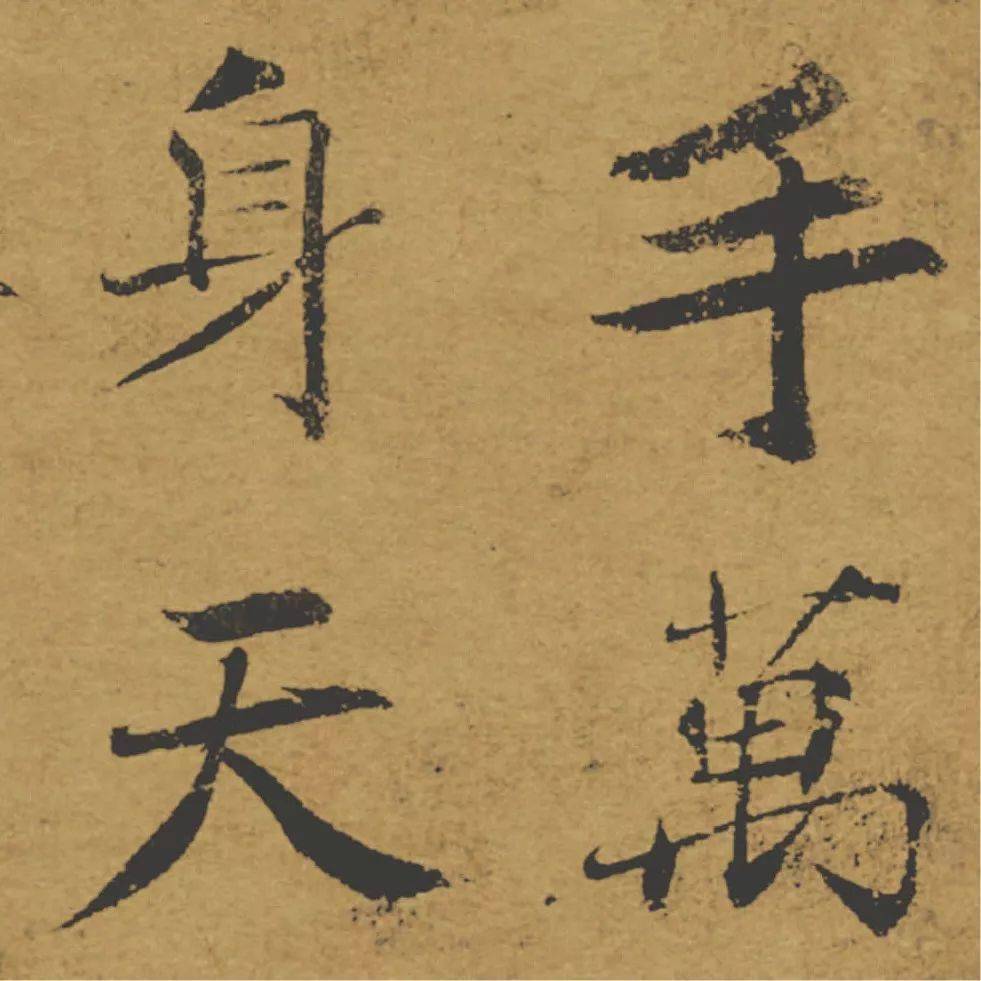 手萬
身天